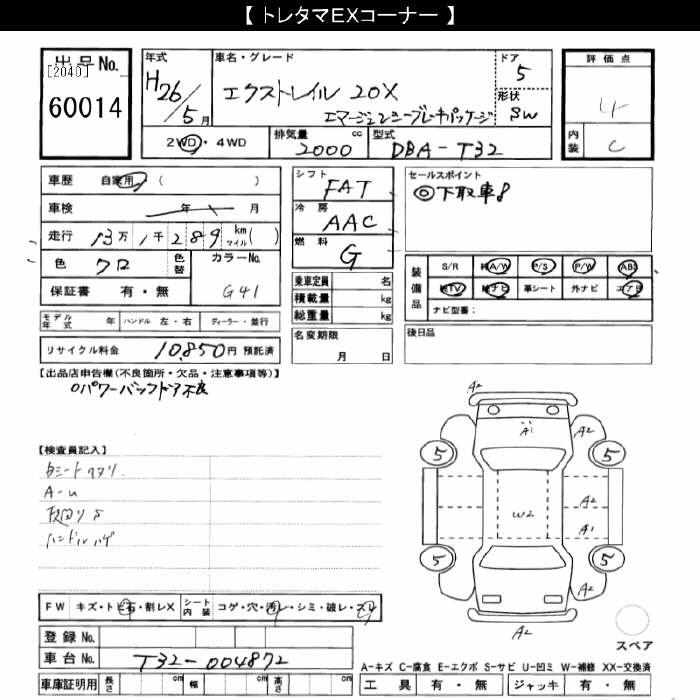 【 トレタマEXコーナー 】
出品No. 年式 車名・グレード ドア 評価点
[2040] H26/5月 エクストレイル 20X 5 4
60014 エマージェンシーブレーキパッケージ 形状 SW
2WD・4WD 排気量 cc 型式 内装 C
2000 DBA-T32
車歴 自家用 ( ) シフト FAT セールスポイント
車検 年 月 冷房 AAC ◎下取車
走行 13万1千289km マイル( ) 燃料 G
色 クロ 色替 カラーNo. 装備品 S/R A/W P/S P/W ABS
保証書 有・無 G41 乗車定員 名 TV ナビ 革シート 外ナビ エアB
積載量 kg ナビ型番:
モデル年式 年 ハンドル 左・右 ディーラー・並行 総重量 kg
リサイクル料金 10,850円 預託済 名変期限 月 日 後日品
【出品店申告欄(不良箇所・欠品・注意事項等)】
○パワーバックドア不良
A2
A1 A2
【検査員記入】 5 5
内シートスワリ
A-U A2
W2
ハンドルハゲ A1
5 5
A2
FW キズ・トビ石・割レX シート内装 コゲ・穴・汚レ・シミ・破レ・スレ
登録No. A2
車台No. T32-004872 スペア
A-キズ C-腐食 E-エクボ S-サビ U-凹ミ W-補修 XX-交換済
車庫証明用 長さ cm 幅 cm 高さ cm 工具 有・無 ジャッキ 有・無